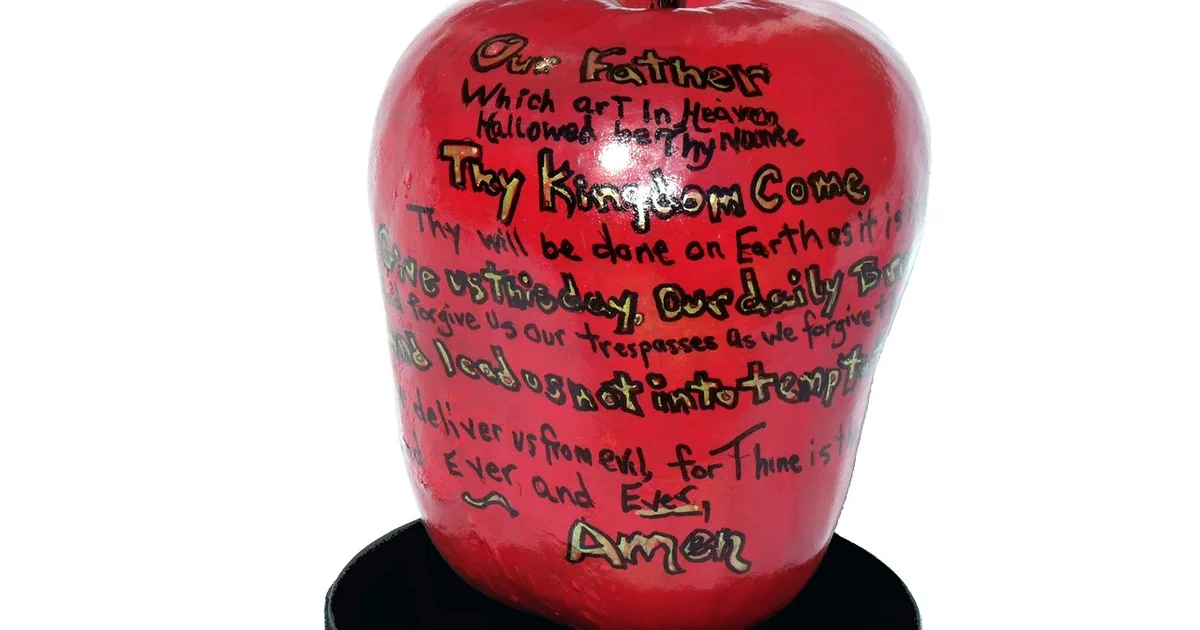 Our Father
Which art In Heaven
Hallowed be Thy Name
Thy Kingdom Come
Thy will be done on Earth as it is
Give us this day, Our daily
forgive us Our trespasses as we forgive
lead us not into
deliver us from evil, for Thine is
Ever, and Ever,
Amen